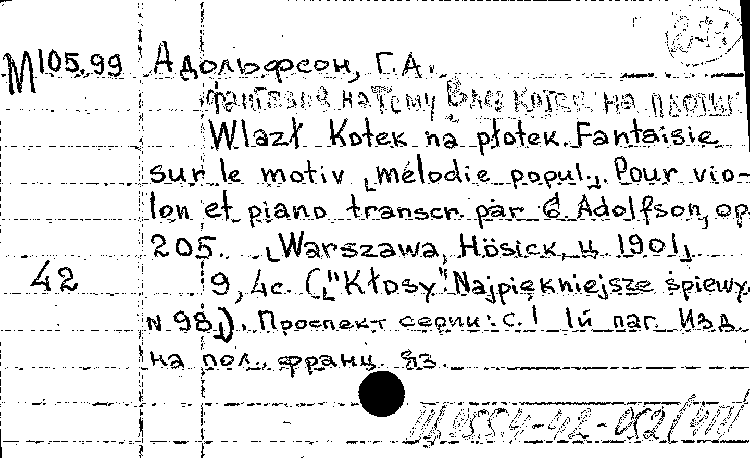 М 105.99 Адольфсон, Г.А.
фантазия на тему Влез котек на плотык
Wlazł Kotek na płotek. Fantaisie
sur le motiv [mélodie popul.]. Pour vio-
lon et piano transcr. par G. Adolfson, op.
205. [Warszawa, Hösick, ц. 1901]
42 9, 4с. (["Kłosy". Najpiękniejsze śpiewy.
N 98]). Проспект серии: с. 1 1й паг. Изд.
на пол., франц. яз.